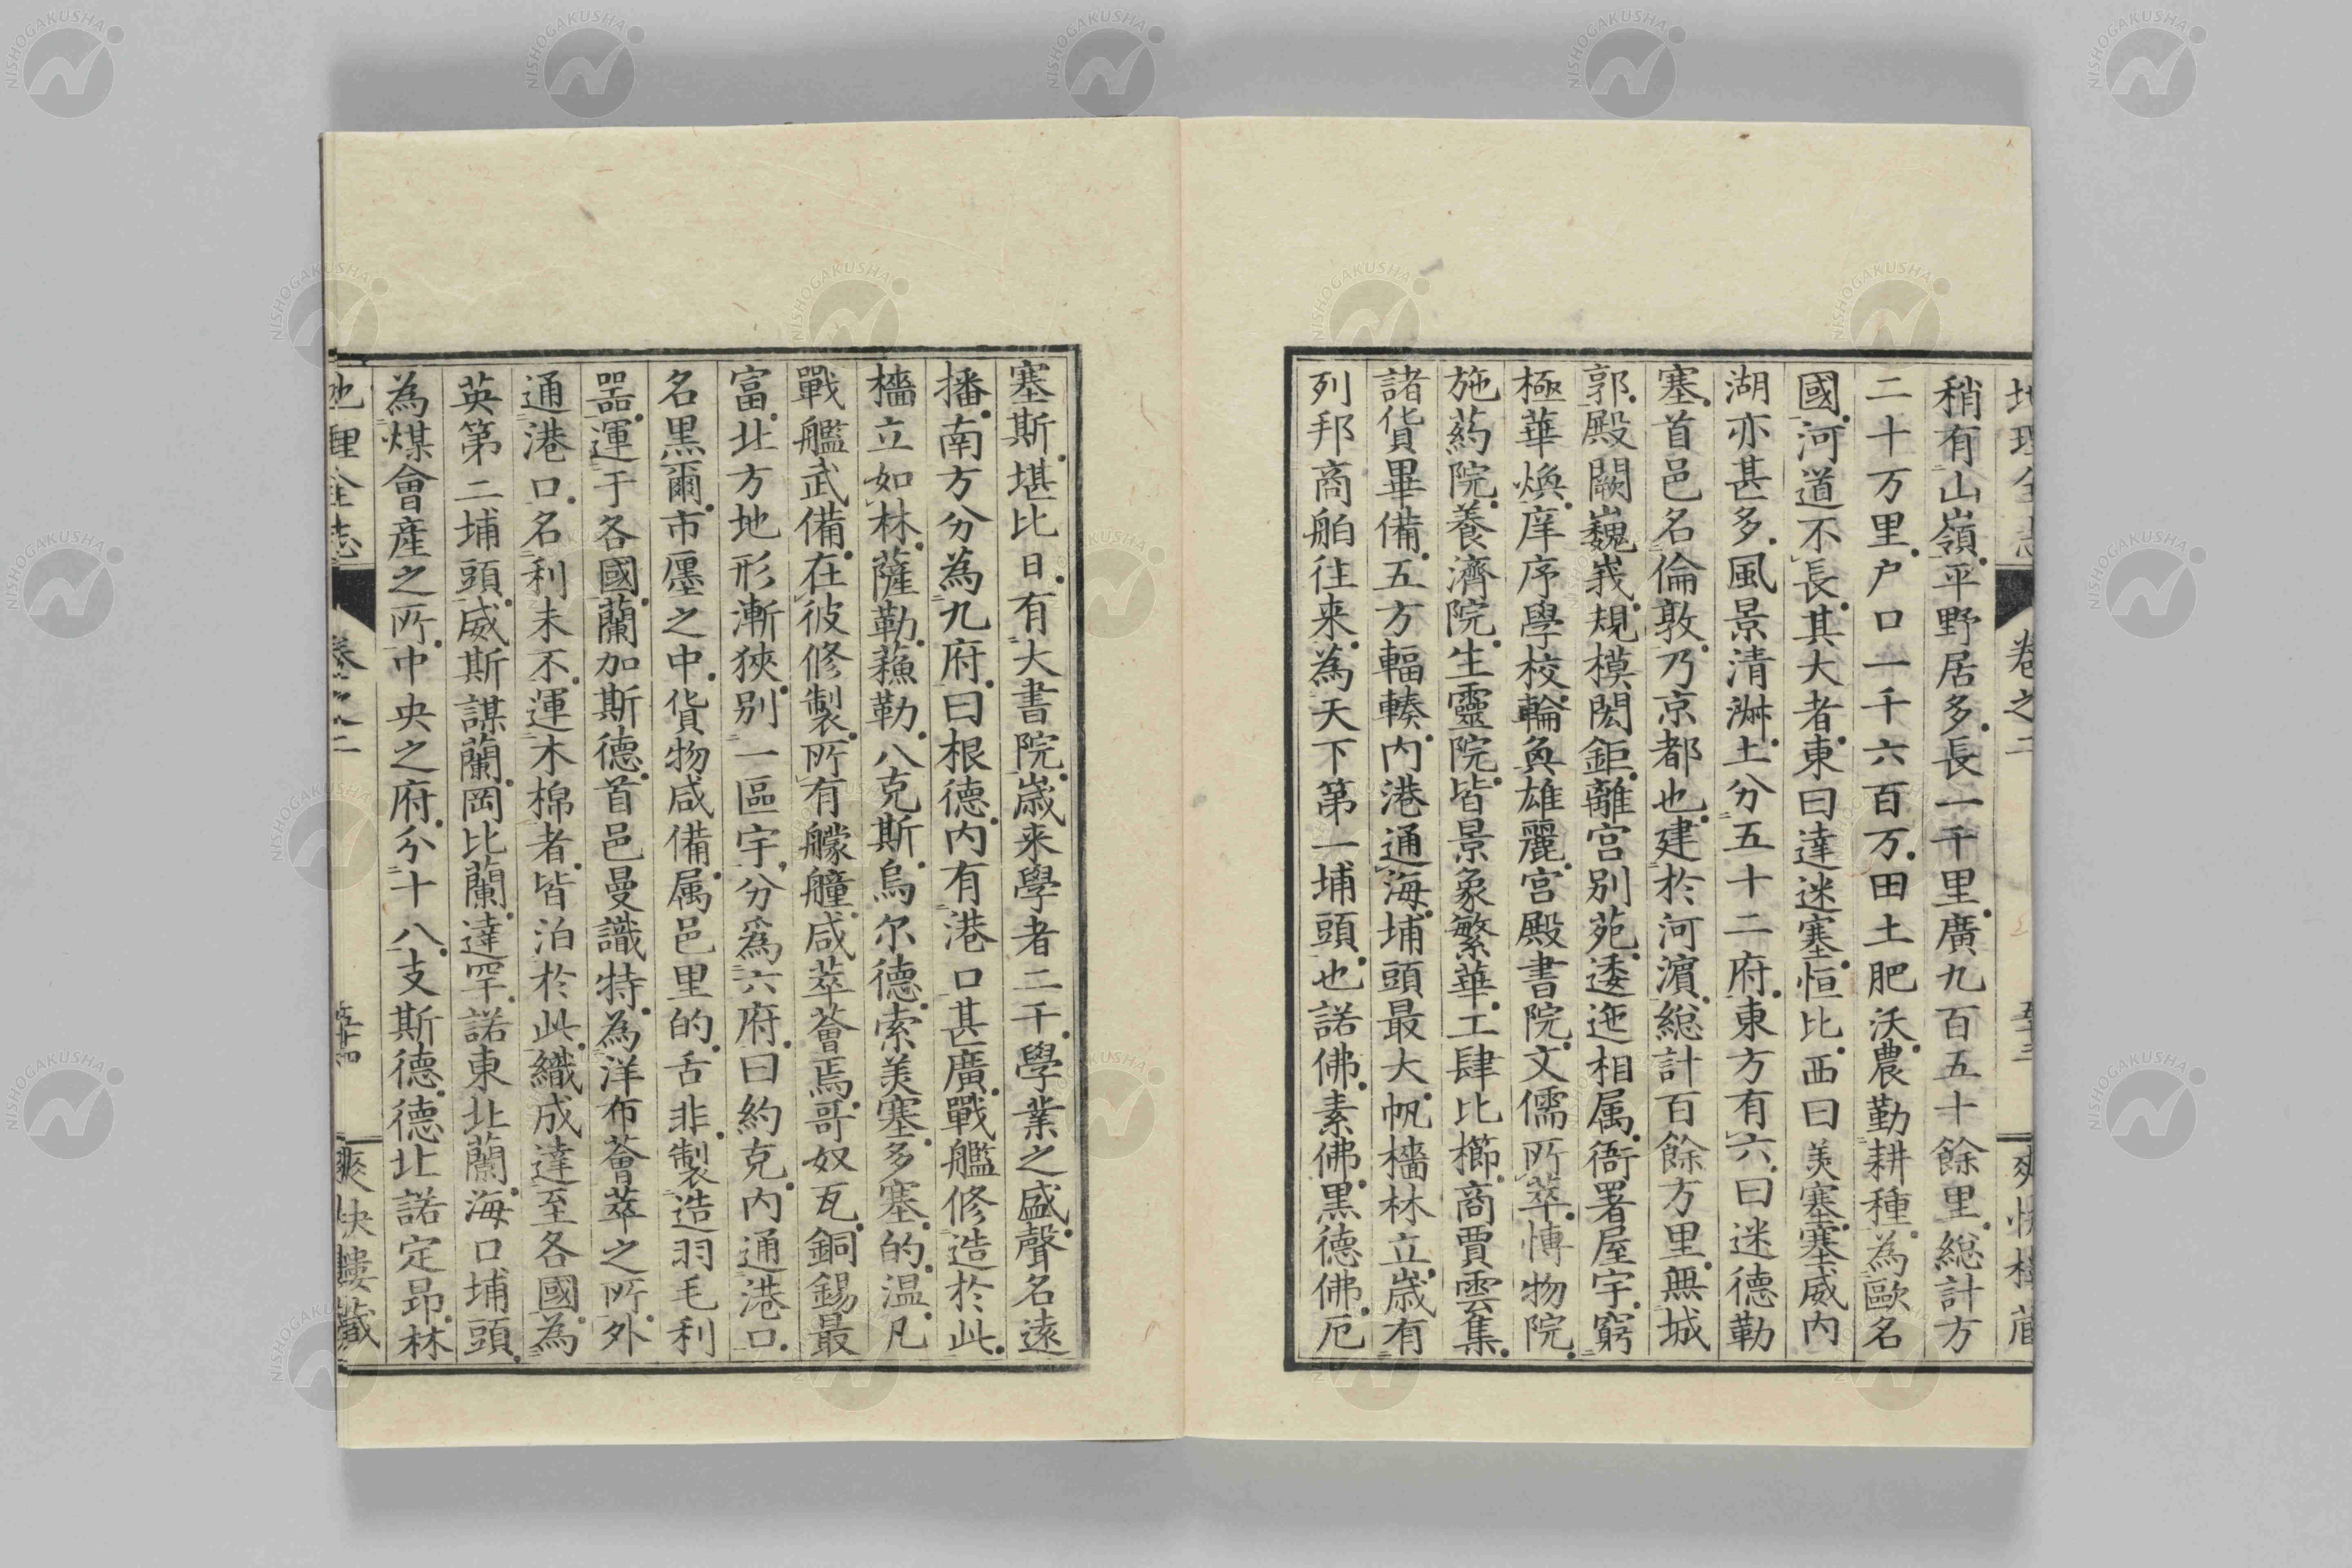 地理全志 卷之二 五十三 爽快樓藏
稍有山嶺。平野居多。長一千里。廣九百五十餘里。總計方
二十万里。户口一千六百万。田土肥沃。農勤耕種。為歐名
國。河道不長。其大者東曰達迷塞。恒比。西曰美塞。塞威内
湖亦甚多。風景清淋。土分五十二府。東方有六。曰迷德勒
塞。首邑名倫敦。乃京都也。建於河濵。總計百餘方里。無城
郭。殿闕巍峩。規模閎鉅。離宫別苑。逶迤相属。衙署屋宇。窮
極華煥。庠序學校。輪奐雄麗。宫殿書院。文儒所萃。博物院。
施葯院。養濟院。生靈院。皆景象繁華。工肆比櫛。商賈雲集。
諸貨畢備。五方輻輳。内港通海。埔頭最大。帆檣林立。歳有
列邦商舶往来。為天下第一埔頭也。諾佛。素佛。黒德佛。厄
塞斯。堪比日。有大書院。歳来學者二千。學業之盛。聲名遠
播。南方分為九府。曰根德。内有港口甚廣。戰艦修造於此。
檣立如林。薩勒。蘓勒。八克斯。烏尔德。索美塞。多塞。的。温。凡
戰艦武備。在彼修製。所有艨艟。咸萃薈焉。哥奴瓦。銅錫最
富。北方地形漸狹。别一區宇。分爲六府。曰約克。内通港口。
名黒爾。市廛之中。貨物咸備。属邑里的。舌非。製造羽毛利
噐。運于各國。蘭加斯德。首邑曼識特。為洋布薈萃之所。外
通港口。名利未不。運木棉者。皆泊於此。織成達至各國。為
英第二埔頭。威斯謀蘭。岡比蘭。達罕。諾東北蘭。海口埔頭。
為煤會産之所。中央之府。分十八。支斯德。德北。諾定昂。林
地理全志 卷之二 五十四 爽快樓藏
NISHOGAKUSHA